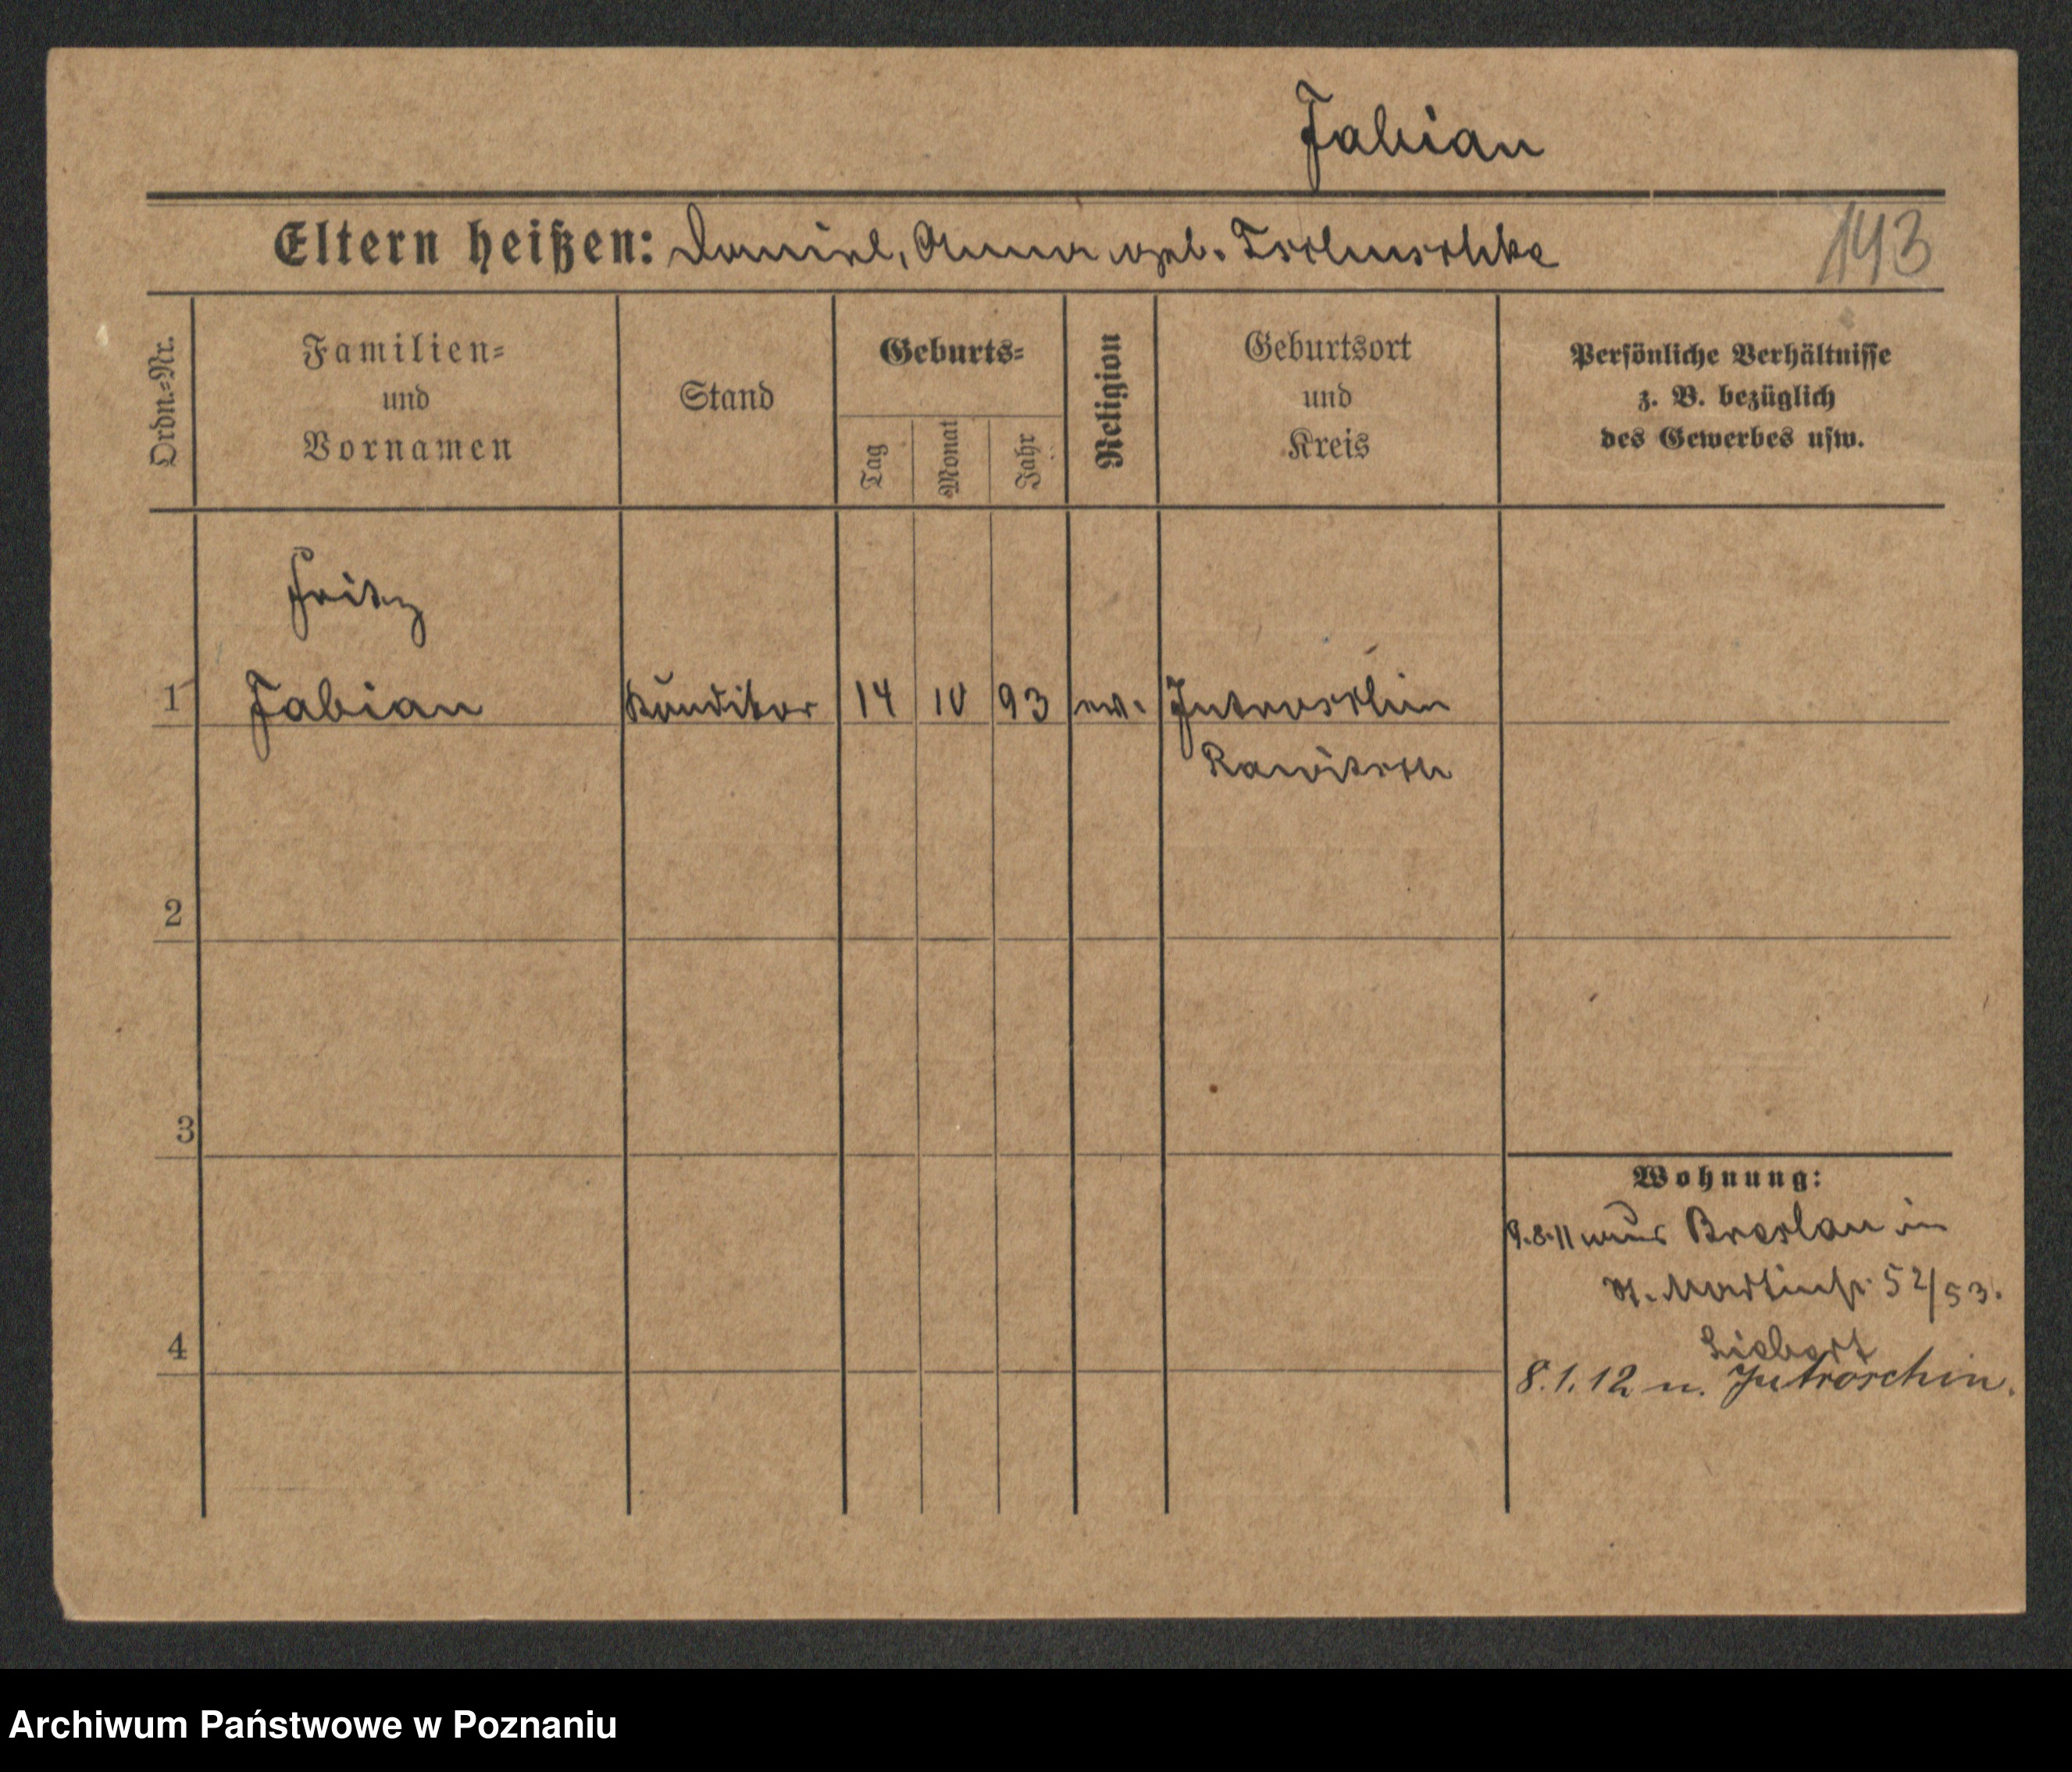 Fabian
Eltern heißen: Daniel, Anna geb. Tschuschke
143
Ordn.-Nr.
Familien-
und
Vornamen
Stand
Geburts-
Tag
Monat
Jahr
Religion
Geburtsort
und
Kreis
Persönliche Verhältnisse
z. B. bezüglich
des Gewerbes usw.
Fritz
1 Fabian Konditor 14 10 93 ev. Jutroschin
Rawitsch
2
3
Wohnung:
9.8.11 aus Breslau in
St. Martinstr. 52/53.
Siebert
4
8.1.12 n. Jutroschin.
Archiwum Państwowe w Poznaniu